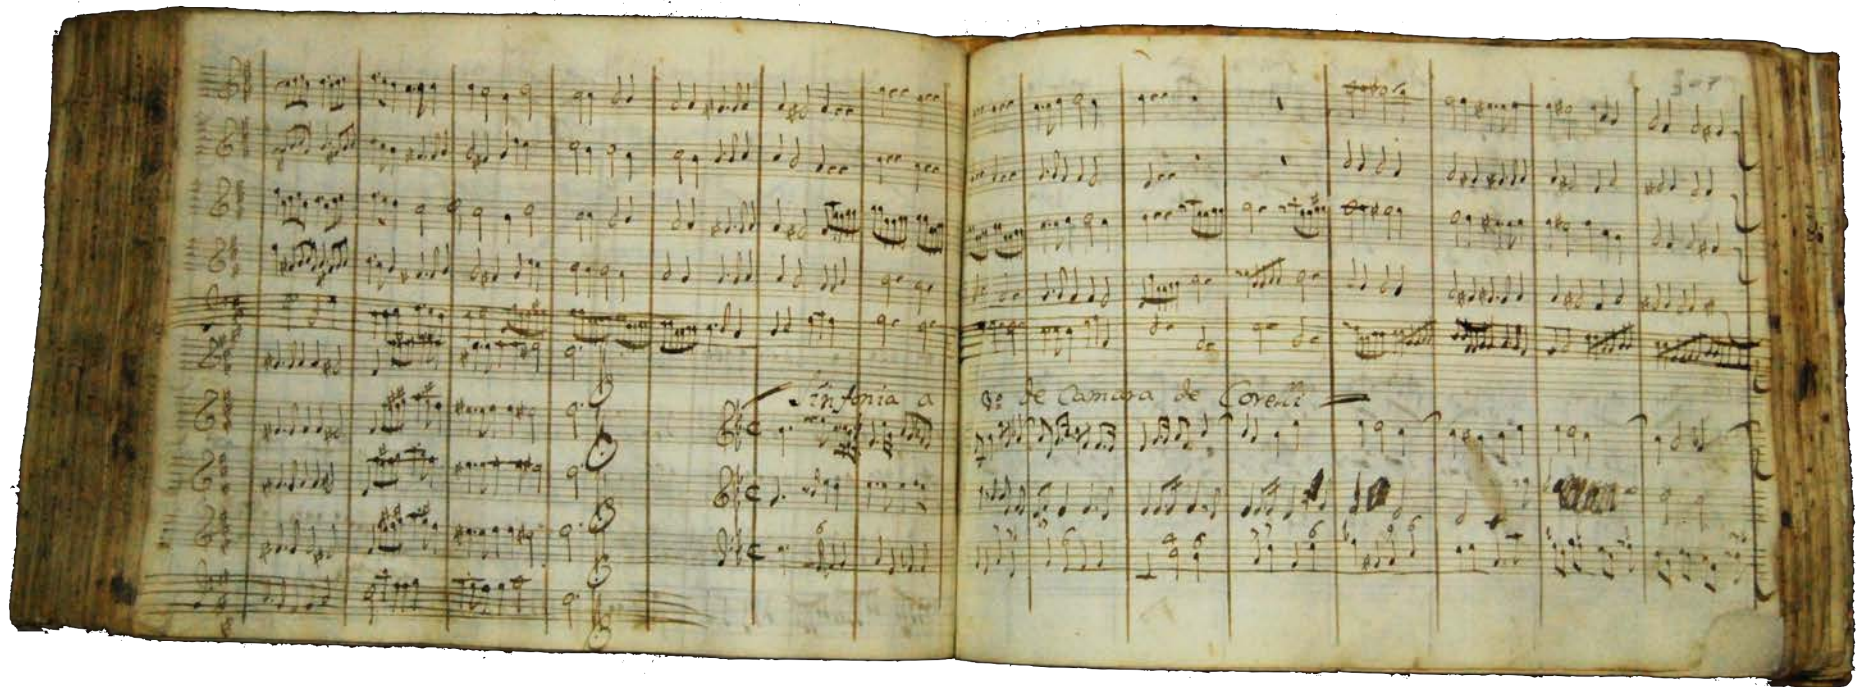 Sinfonia a 3º de Camara de Corelli